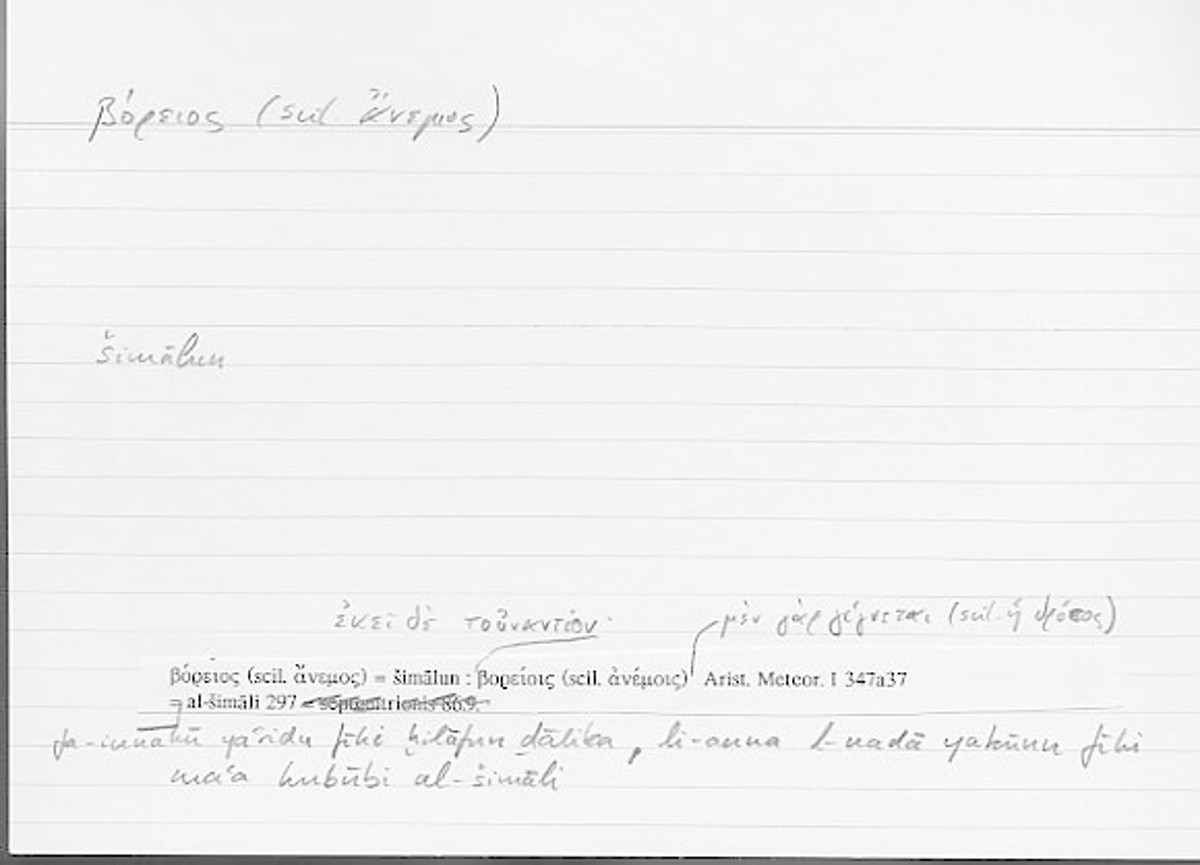 βόρειος (scil. ἄνεμος)
šimālun
ἐκεῖ δὲ τοὐναντίον·
μὲν γὰρ γίγνεται (scil. ἡ δρόσος)
βόρειος (scil. ἄνεμος) = šimālun : βορείοις (scil. ἀνέμοις) Arist. Meteor. I 347a37
= al-šimāli 297 = septentrionis 86.9.
fa-innahū yaʿriḍu fīhi ḫilāfun ḏālika, li-anna l-nadā yakūnu fīhi
maʿa hubūbi al-šimāli